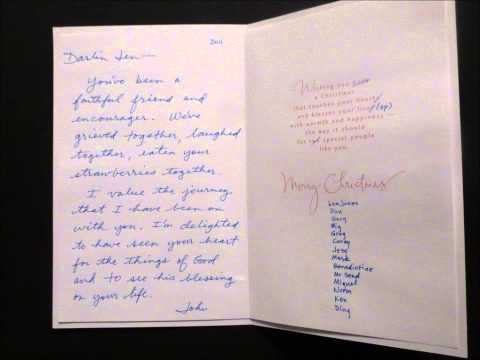 2011
Darlin Jen—
You've been a
faithful friend and
encourager. We've
grieved together, laughed
together, eaten your
strawberries together.
I value the journey
that I have been on
with you. I'm delighted
to have seen your heart
for the things of God
and to see his blessing
on your life.
John
Wishing you
a Christmas
that touches your heart
and blesses your life
with warmth and happiness
the way it should
for special people
like you.
Merry Christmas
Don
Gary
Big
Greg
Corey
Jesse
Mark
Benedictine
Mr Send
Miguel
Norm
Ken
Ding